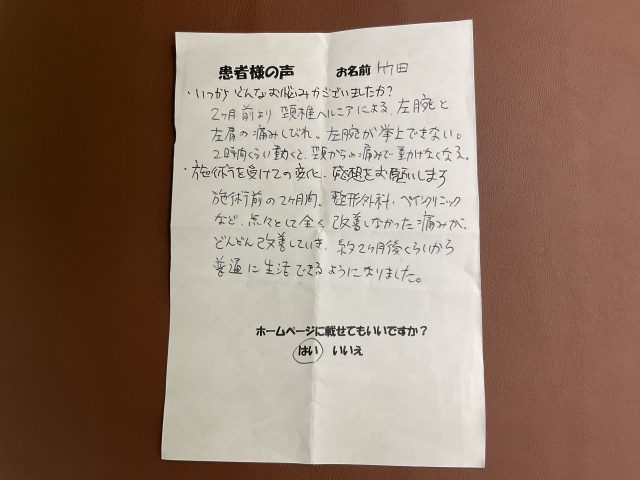 患者様の声 お名前 竹田
・いつからどんなお悩みがございましたか？
2ヶ月前より頚椎ヘルニアによる、左腕と
左肩の痛みしびれ。左腕が挙上できない。
2時間くらい動くと、頚からの痛みで動けなくなる。
・施術を受けての変化、感想をお願いします
施術前の2ヶ月間、整形外科、ペインクリニック
など、点々として全く改善しなかった痛みが、
どんどん改善していき、約2ヶ月後くらいから
普通に生活できるようになりました。
ホームページに載せてもいいですか？
はい いいえ